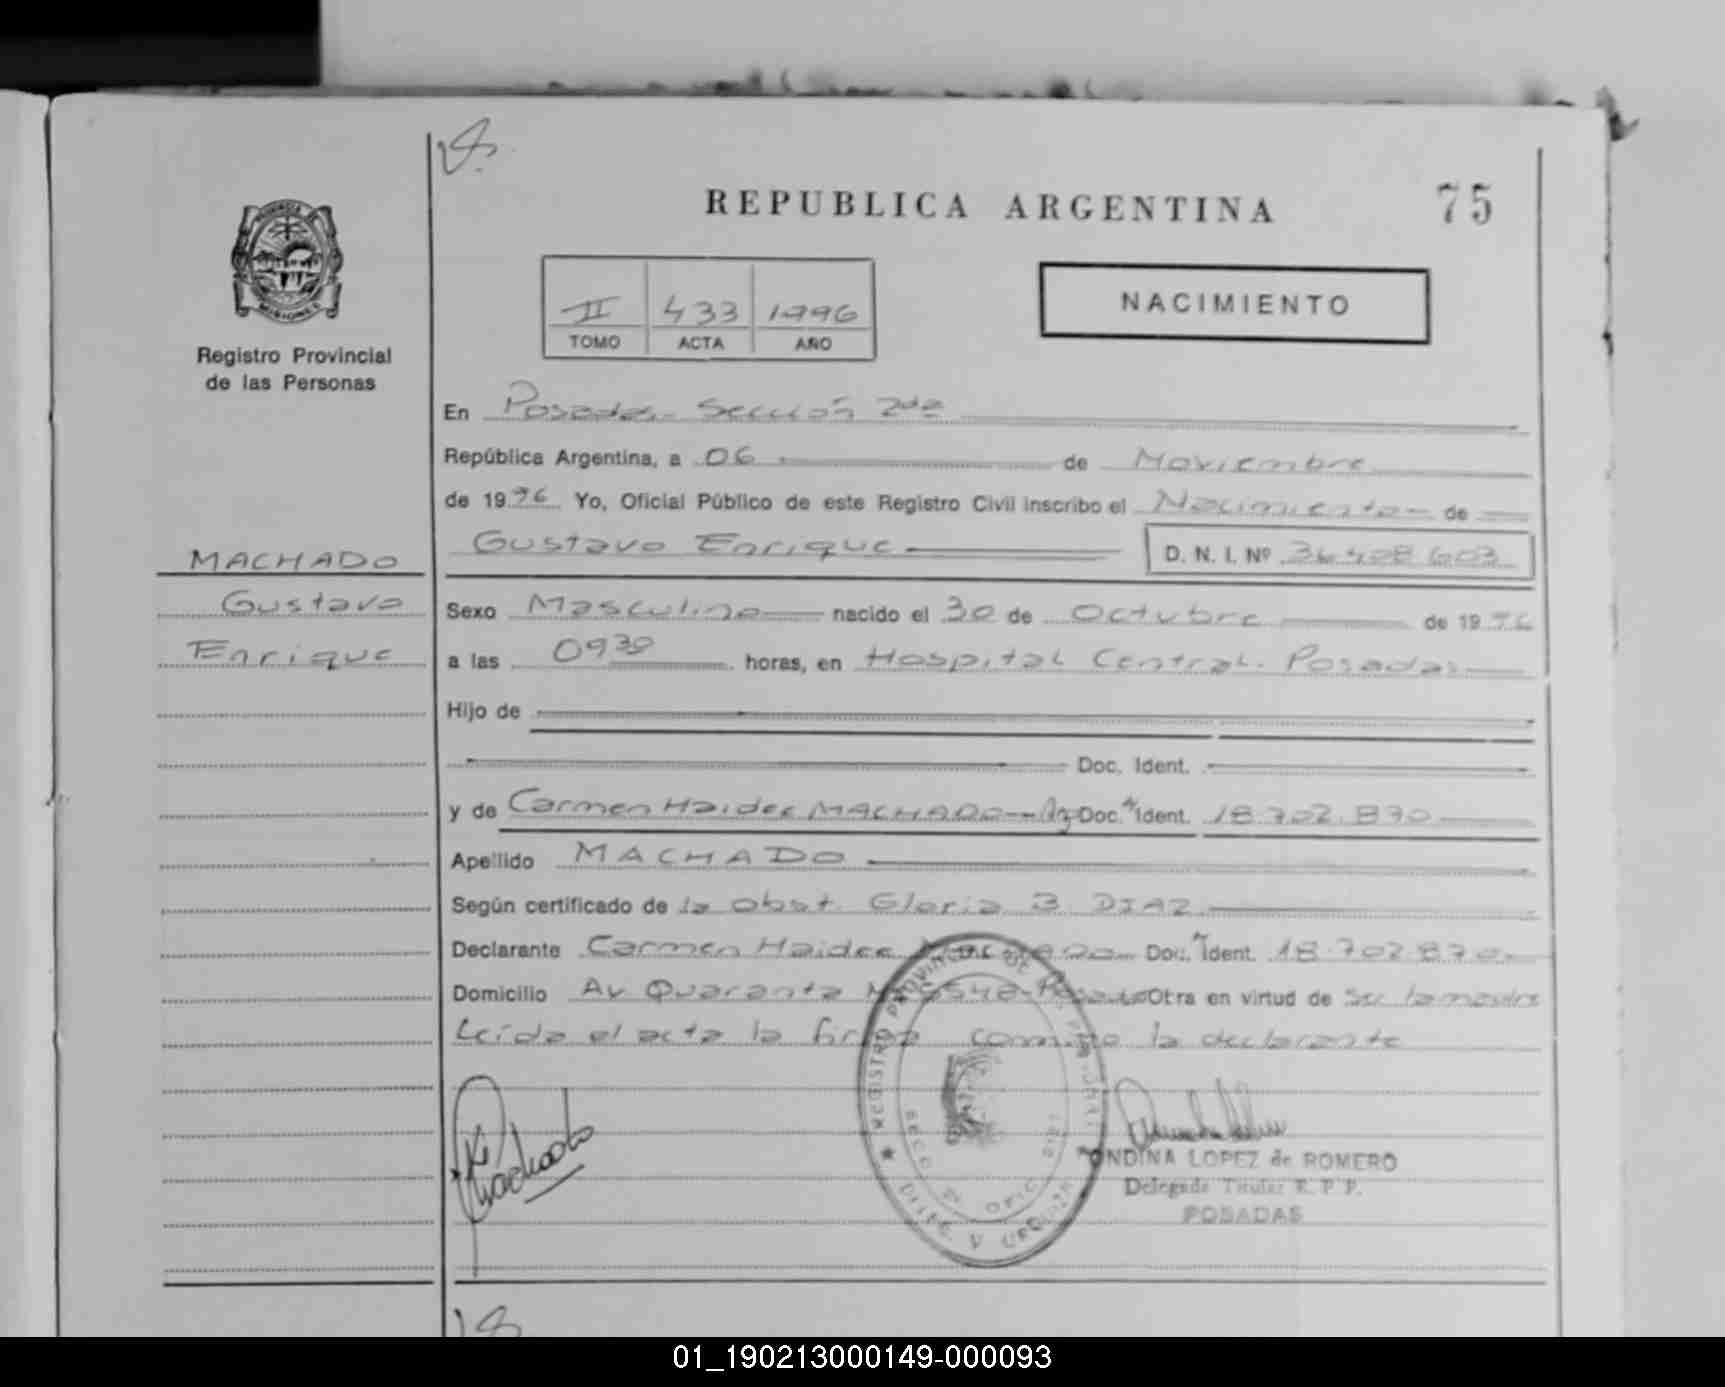 REPUBLICA ARGENTINA
75
PROVINCIA DE
MISIONES
Registro Provincial
de las Personas
II 433 1996
TOMO ACTA AÑO
NACIMIENTO
En Posadas - Sección 2da
República Argentina, a 06 de Noviembre
de 1996 Yo, Oficial Público de este Registro Civil inscribo el Nacimiento de
Gustavo Enrique D. N. I. Nº
MACHADO
Gustavo
Enrique
Sexo Masculino nacido el 30 de Octubre de 1996
a las 0930 horas, en Hospital Central. Posadas
Hijo de
Doc. Ident.
y de Carmen Haidee MACHADO Doc. Ident. 18.702.870
Apellido MACHADO
Según certificado de la Obst. Gloria B. DIAZ
Declarante Carmen Haidee MACHADO Doc. Ident. 18.702.870
Domicilio Av Quaranta Posadas Otra en virtud de ser la madre
Leída el acta la firma conmigo la declarante
Machado
REGISTRO PROVINCIAL DE LAS PERSONAS
ONDINA LOPEZ de ROMERO
Delegada Titular R. P. P.
POSADAS
01_190213000149-000093